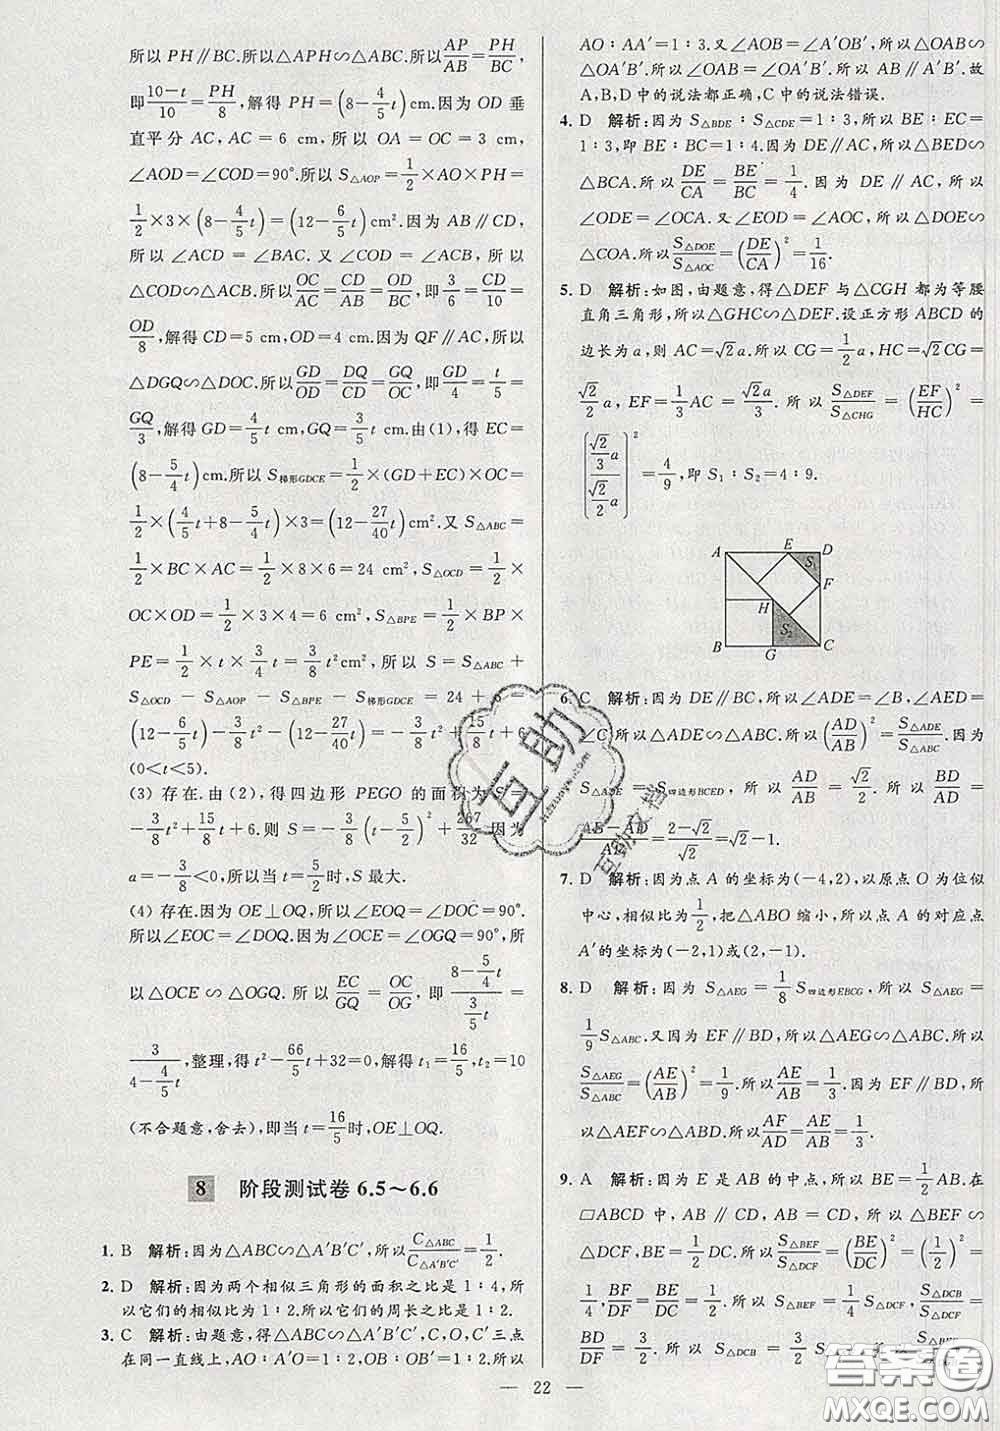 所以 PH∥BC.所以△APH∽△ABC.所以AP/AB=PH/BC,
即(10-t)/10=PH/8,解得 PH=(8-4/5t)cm.因为 OD 垂
直平分 AC,AC=6 cm,所以 OA=OC=3 cm,
∠AOD=∠COD=90°.所以 S△AOP=1/2×AO×PH=
1/2×3×(8-4/5t)=(12-6/5t)cm².因为 AB∥CD,
所以∠ACD=∠BAC.又∠COD=∠ACB=90°,所以
△COD∽△ACB.所以OC/AC=CD/AB=OD/BC,即3/6=CD/10=
OD/8,解得 CD=5 cm,OD=4 cm.因为 QF∥AC,所以
△DGQ∽△DOC.所以GD/OD=DQ/CD=GQ/OC,即GD/4=t/5=
GQ/3,解得 GD=4/5t cm,GQ=3/5t cm.由(1),得 EC=
(8-5/4t)cm.所以 S梯形GDCE=1/2×(GD+EC)×OC=
1/2×(4/5t+8-5/4t)×3=(12-27/40t)cm².又 S△ABC=
1/2×BC×AC=1/2×8×6=24 cm²,S△OCD=1/2×
OC×OD=1/2×3×4=6 cm²,S△BPE=1/2×BP×
PE=1/2×t×3/4t=3/8t²cm²,所以 S=S△ABC+
S△OCD-S△AOP-S△BPE-S梯形GDCE=24+6-
(12-6/5t)-3/8t²-(12-27/40t)=-3/8t²+15/8t+6
(0<t<5).
(3) 存在.由(2),得四边形 PEGO 的面积为 S=
-3/8t²+15/8t+6.则 S=-3/8(t-5/2)²+267/32.因为
a=-3/8<0,所以当 t=5/2时,S 最大.
(4) 存在.因为 OE⊥OQ,所以∠EOC+∠QOC=90°.
所以∠EOC=∠DOQ.因为∠OCE=∠OGQ=90°,所
以△OCE∽△OGQ.所以EC/GQ=OC/OG,即(8-5/4t)/(3/5t)=
3/(4-4/5t),整理,得 t²-66/5t+32=0,解得 t₁=16/5,t₂=10
(不合题意,舍去),即当 t=16/5时,OE⊥OQ.
8 阶段测试卷 6.5～6.6
1. B 解析:因为△ABC∽△A′B′C′,所以C△ABC/C△A′B′C′=1/2.
2. D 解析:因为两个相似三角形的面积之比是1∶4,所
以它们的相似比为1∶2.所以它们的周长之比为1∶2.
3. C 解析:由题意,得△ABC∽△A′B′C′,C,O,C′三点
在同一直线上,AO∶A′O=1∶2,OB∶OB′=1∶2.所以
AO∶AA′=1∶3.又∠AOB=∠A′OB′,所以△OAB∽
△OA′B′.所以∠OAB=∠OA′B′.所以 AB∥A′B′.故
A,B,D 中的说法都正确,C中的说法错误.
4. D 解析:因为 S△BDE∶S△CDE=1∶3,所以 BE∶EC=
1∶3,即 BE∶BC=1∶4.因为 DE∥AC,所以△BED∽
△BCA.所以DE/CA=BE/BC=1/4.因为 DE∥AC,所以
∠ODE=∠OCA.又∠EOD=∠AOC,所以△DOE∽
△COA.所以S△DOE/S△AOC=(DE/CA)²=1/16.
5. D 解析:如图,由题意,得△DEF 与△CGH 都为等腰
直角三角形,所以△GHC∽△DEF.设正方形 ABCD 的
边长为a,则 AC=√2a.所以 CG=1/2a,HC=√2CG=
√2/2a,EF=1/3AC=√2a/3.所以S△DEF/S△CHG=(EF/HC)²=
((√2/3a)/(√2/2a))²=4/9,即 S₁∶S₂=4∶9.
A E D
S₁
F
H
S₂
B G C
6. C 解析:因为 DE∥BC,所以∠ADE=∠B,∠AED=
∠C.所以△ADE∽△ABC.所以(AD/AB)²=S△ADE/S△ABC.因为
S△ADE=S四边形BCED,所以AD/AB=√2/2.所以BD/AD=
(AB-AD)/AD=(2-√2)/√2=√2-1.
7. D 解析:因为点 A 的坐标为(-4,2),以原点 O 为位似
中心,相似比为1/2,把△ABO 缩小,所以点 A 的对应点
A′的坐标为(-2,1)或(2,-1).
8. D 解析:因为 S△AEG=1/8S四边形EBCG,所以 S△AEG=
1/9S△ABC.又因为 EF∥BD,所以△AEG∽△ABC.所以
S△AEG/S△ABC=(AE/AB)²=1/9.所以AE/AB=1/3.因为 EF∥BD,所
以△AEF∽△ABD.所以AF/AD=AE/AB=1/3.
9. A 解析:因为 E 是 AB 的中点,所以 BE=1/2AB.在
▱ABCD 中,AB=CD,AB∥CD,所以△BEF∽
△DCF,BE=1/2CD.所以S△BEF/S△DCF=(BE/DC)²=(1/2)²=
1/4,BF/DF=BE/DC=1/2.所以 S△BEF=1/4S△DCF,S△DCB/S△DCF=
BD/DF=3/2.所以 S△DCB=3/2
— 22 —
互助
互助文档
答案圈
MXQE.COM